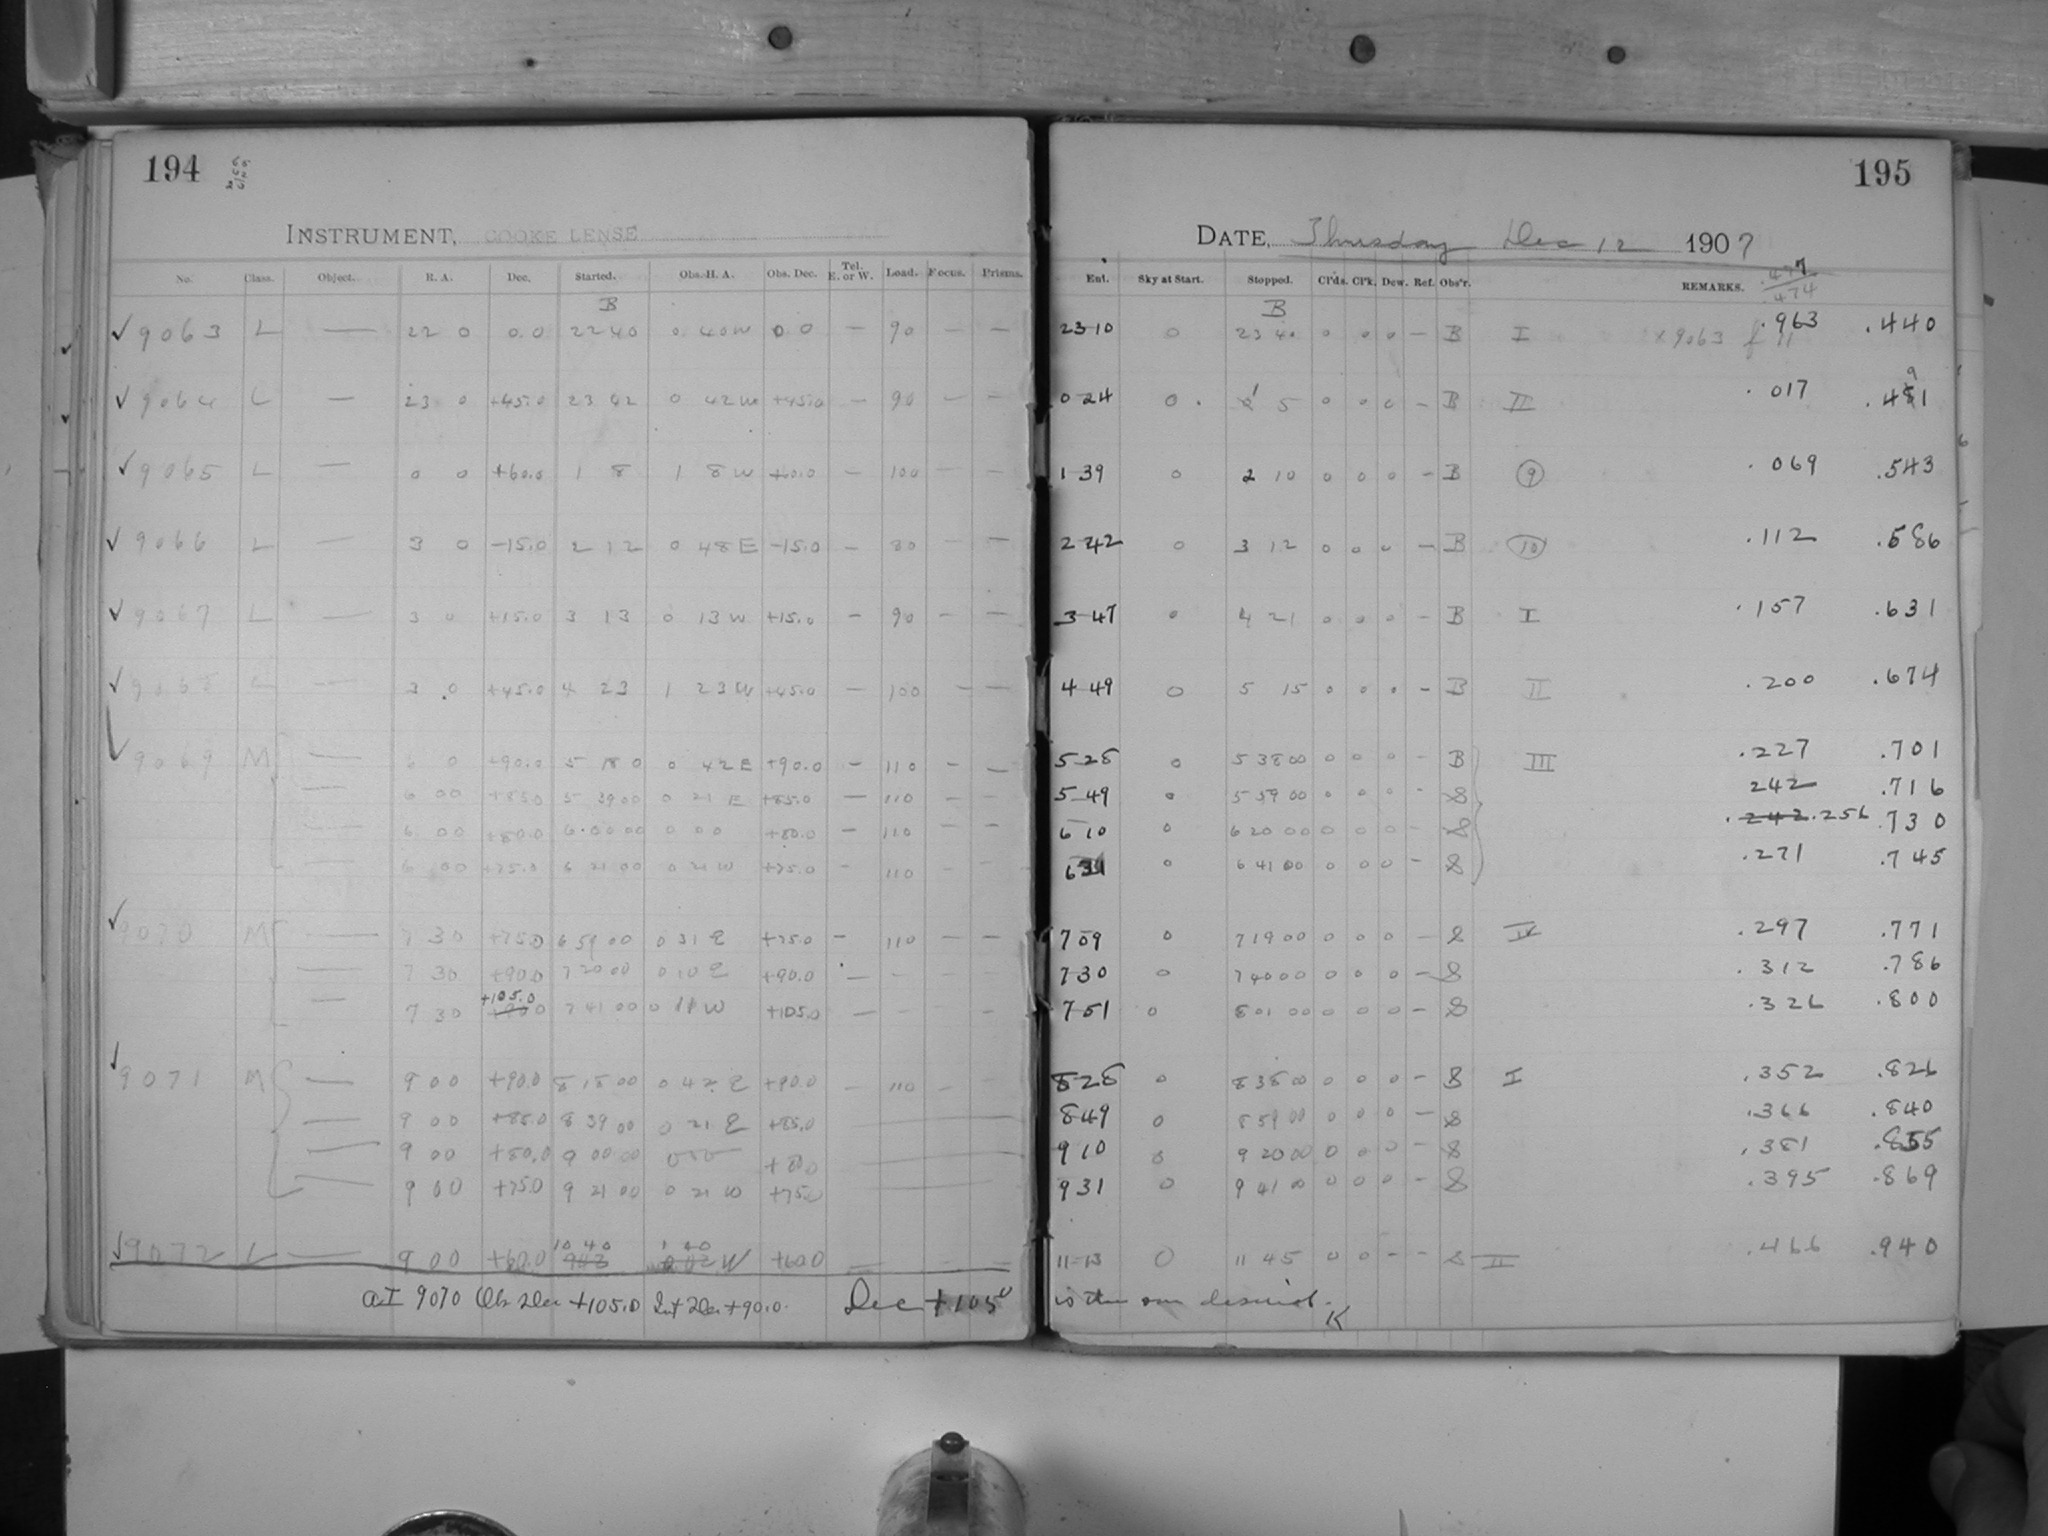 194
INSTRUMENT, COOKE LENSE
No. Class. Object. R. A. Dec. Started. Obs. H. A. Obs. Dec. Tel. E. or W. Load. Focus. Prisms.
B
✓ 9063 L — 22 0 0.0 22 40 0 40 W 0 0 — 90 — —
✓ 9064 L — 23 0 +45.0 23 42 0 42 W +45.0 — 90 — —
✓ 9065 L — 0 0 +60.0 1 8 1 8 W +60.0 — 100 — —
✓ 9066 L — 3 0 -15.0 2 12 0 48 E -15.0 — 80 — —
✓ 9067 L — 3 0 +15.0 3 13 0 13 W +15.0 — 90 — —
✓ 9068 L — 3 0 +45.0 4 23 1 23 W +45.0 — 100 — —
✓ 9069 M — 6 0 +90.0 5 18 0 0 42 E +90.0 — 110 — —
— 6 00 +85.0 5 39 00 0 21 E +85.0 — 110 — —
— 6 00 +80.0 6 00 00 0 00 +80.0 — 110 — —
— 6 00 +75.0 6 21 00 0 21 W +75.0 — 110 — —
✓ 9070 M — 7 30 +75.0 6 59 00 0 31 E +75.0 — 110 — —
— 7 30 +90.0 7 20 00 0 10 E +90.0 — — — —
+105.0
— 7 30 +90.0 7 41 00 0 11 W +105.0 — — —
✓ 9071 M — 9 00 +90.0 8 18 00 0 42 E +90.0 — 110 — —
— 9 00 +85.0 8 39 00 0 21 E +85.0
— 9 00 +80.0 9 00 00 0 00 +80
— 9 00 +75.0 9 21 00 0 21 W +75.0
10 40 1 40
✓ 9072 L — 9 00 +60.0 W +60.0 — — —
at 9070 Obs Dec +105.0 Int Dec +90.0. Dec +105°
195
DATE, Thursday Dec 12 1907
Ent. Sky at Start. Stopped. Cl'ds. Cl'k. Dew. Ref. Obs'r. REMARKS.
.474
B
23 10 0 23 40 0 0 0 — B I x 9063 .963 .440
0 24 0 1 5 0 0 0 — B II .017 .491
1 39 0 2 10 0 0 0 — B 9 .069 .543
2 42 0 3 12 0 0 0 — B 10 .112 .586
3 47 0 4 21 0 0 0 — B I .157 .631
4 49 0 5 15 0 0 0 — B II .200 .674
5 28 0 5 38 00 0 0 0 — B III .227 .701
5 49 0 5 59 00 0 0 0 — S 242 .716
6 10 0 6 20 00 0 0 0 — S .242 .256 .730
6 31 0 6 41 00 0 0 0 — S .271 .745
7 09 0 7 19 00 0 0 0 — S IV .297 .771
7 30 0 7 40 00 0 0 0 — S .312 .786
7 51 0 8 01 00 0 0 0 — S .326 .800
8 28 0 8 38 00 0 0 0 — S I .352 .826
8 49 0 8 59 00 0 0 0 — S .366 .840
9 10 0 9 20 00 0 0 0 — S .381 .855
9 31 0 9 41 00 0 0 0 — S .395 .869
11-13 0 11 45 0 0 — — S II .466 .940
is the one desired.
K